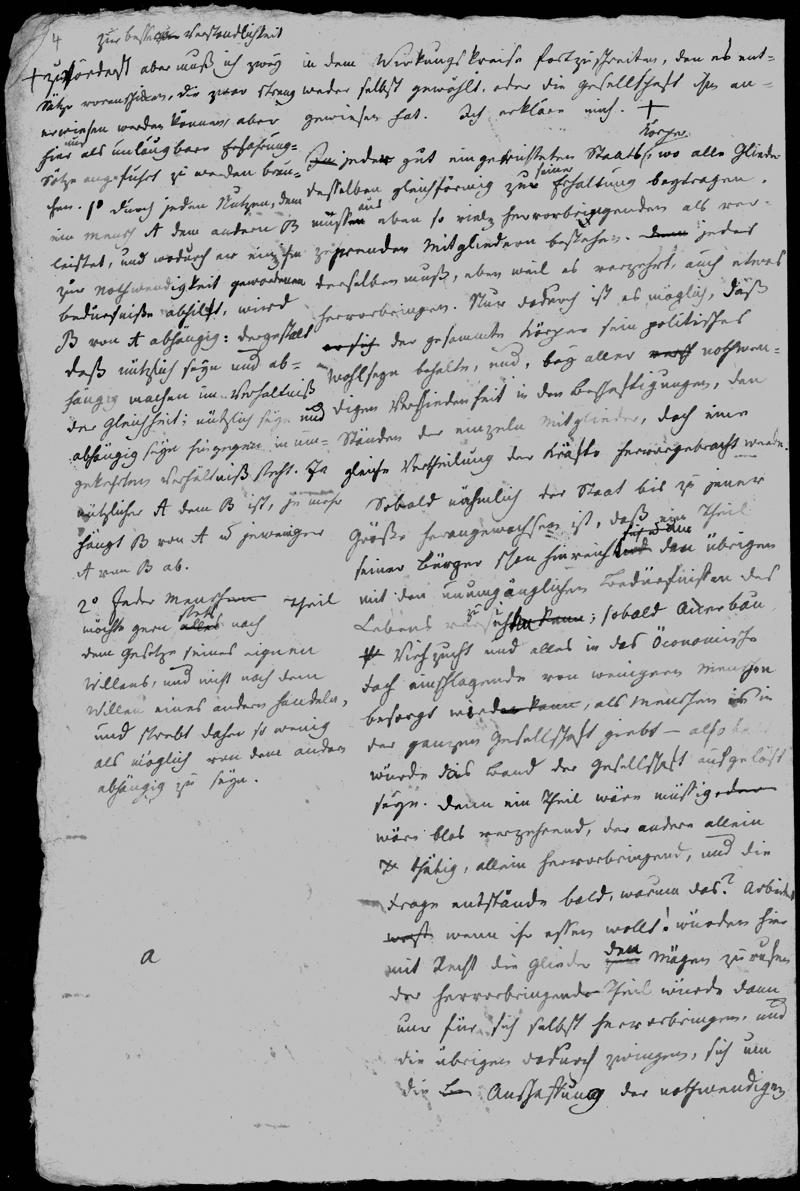 4
zur bessern Verständlichkeit
+ zuförderst aber muß ich zwey
Sätze voraussschicken, die zwar streng
erwiesen werden können, aber
hier nur als unläugbare Erfahrungs-
Sätze angeführt zu werden brau-
chen. 1° durch jeden Nutzen, dem
ein Mensch A dem andern B
leistet, und wodurch er ein ihm
zur Nothwendigkeit gewordenen
Bedürfniße abhilft, wird
B von A abhängig: dergestalt
daß nützlich seyn und ab-
hängig machen im Verhältniß
der Gleichheit; nützlich seyn und
abhängig seyn hingegen in um-
gekehrtem Verhältniß steht. Je
nützlicher A dem B ist, je mehr
hängt B von A u jeweniger
A von B ab.
2° Jeder Menschen Theil
möchte gern alles stets nach
dem Gesetze seines eignen
Willens, und nicht nach dem
Willen eines andern handeln,
und strebt daher so wenig
als möglich von dem andern
abhängig zu seyn.
a
in dem Wirkungskreise fortzuschreiten, den es ent-
weder selbst gewählt, oder die Gesellschaft ihm an-
gewiesen hat. Ich erkläre mich. +
In jedem gut eingerichteten Staats Körper, wo alle Glieder
desselben gleichförmig zur seine Erhaltung beytragen,
müssen aus eben so viele hervorbringenden als ver-
zehrenden Mitgliedern bestehen. Denn jedes
derselben muß, eben weil es verzehrt, auch etwas
hervorbringen. Nur dadurch ist es möglich, daß
er sich der gesammte Körper sein politisches
Wohlseyn behalte, und, bey aller nothwen-
digen Verschiedenheit in den Beschäftigungen, den
Ständen der einzeln Mitglieder, doch eine
gleiche Vertheilung der Kräfte hervorgebracht werde.
Sobald nähmlich der Staat bis zu jener
Größe herangewachsen ist, daß ein Theil
seiner Bürger schon hinreicht sich und den übrigen
mit den unumgänglichen Bedürfnissen des
Lebens zu versehen kann; sobald Ackerbau,
Viehzucht und alles in das Öconomische
Fach einschlagende von wenigern Menschen
besorgt werden kann, als Menschen es in
der ganzen Gesellschaft giebt — also
würde das Band der Gesellschaft aufgelößt
seyn. Denn ein Theil wäre müßig,
wäre blos verzehrend, der andere allein
thätig, allein hervorbringend, und die
Frage entstände bald, warum das? Arbeitet
wenn ihr essen wollt! würden hier
mit Recht die Glieder den Mägen zu rufen
der hervorbringende Theil würde dann
nur für sich selbst hervorbringen, und
die übrigen dadurch zwingen, sich um
die Anschaffung der nothwendigen